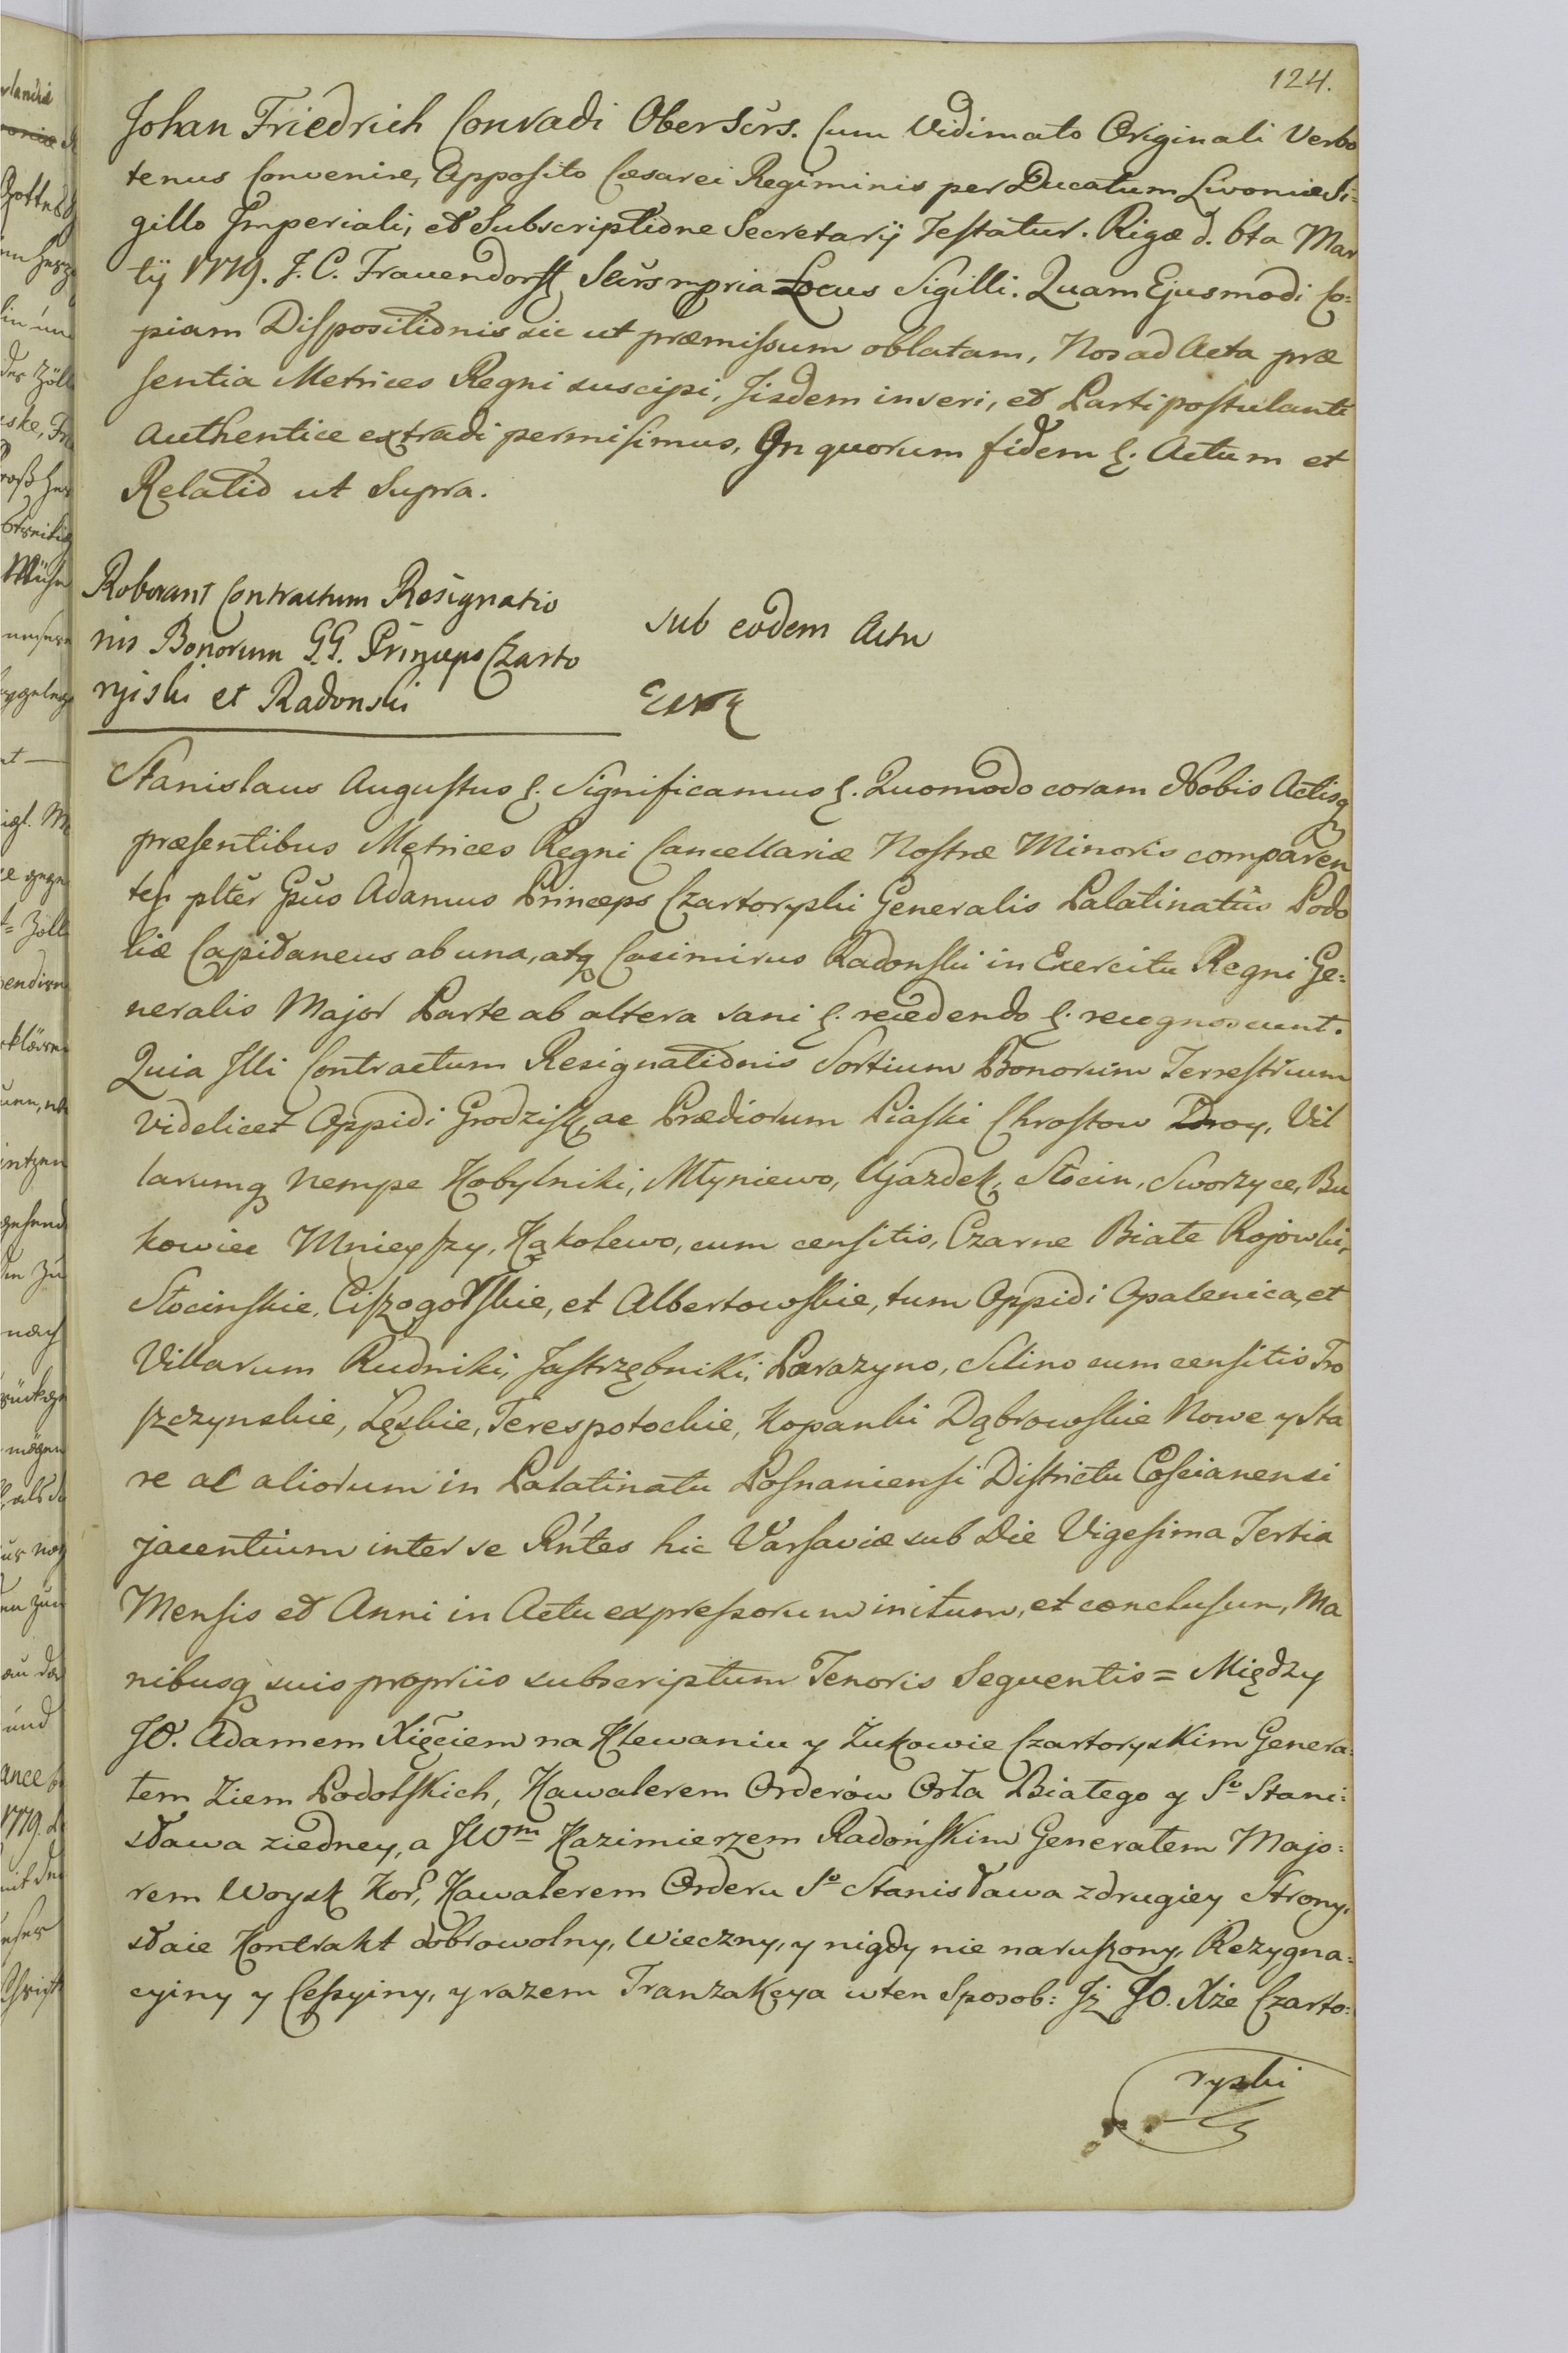 124.
Johan Friedrich Conradi Obersĉrs. Cum Vidimato Originali Verbo
tenus Convenire, Apposito Cæsarei Regiminis per Ducatum Livoniæ Si=
gillo Imperiali, et Subscriptione Secretarij Testatur. Rigæ d. 6ta Mar
tij 1779. J. C. Frauendorff Secrs mpria Locus Sigilli. Quam Ejusmodi Co=
piam Dispositionis sic ut præmissum oblatam, Nos ad Acta præ
sentia Metrices Regni suscipi, Iisdem inseri, et Parti postulanti
Authentice extradi permisimus, In quorum fidem &. Actum et
Relatio ut Supra.
Roborant Contractum Resignatio
nis Bonorum G.G. Princeps Czarto
ryiski et Radonski
sub eodem Actu
Stanislaus Augustus &. Significamus &. Quomodo coram Nobis Actisq
præsentibus Metrices Regni Cancellariæ Nostræ Minoris comparen
tes plter Gsus Adamus Princeps Czartoryski Generalis Palatinatûs Podo
liæ Capitaneus ab una, atq Casimirus Radonski in Exercitu Regni Ge=
neralis Major Parte ab altera sani &. recedendo &. recognoverunt.
Quia Illi Contractum Resignationis Sortium Bonorum Terrestrium
videlicet Oppidi Grodzisk, ac Prædiorum Piaski Chrostow Zdroy, Vil
larumq nempe Kobylniki, Młyniewo, Ujazdek, Słocin, Sworzyce, Bu
kowiec Mnieyszy, Kąkolewo, cum censitis, Czarne Białe Rojowki,
Słocinskie, Ciszogorskie, et Albertowskie, tum Oppidi Opalenica, et
Villarum Rudniki, Jastrzębniki, Parazyno, Silino cum censitis Tro
szczynskie, Lęskie, Terespotockie, Kopanki Dąbrowskie Nowe y Sta
re ac aliorum in Palatinatu Posnaniensi Districtu Coscianensi
jacentium inter se Rntes hic Varsaviæ sub Die Vigesima Tertia
Mensis et Anni in Actu expressorum initum, et conclusum, Ma
nibusq suis propriis subscriptum Tenoris Sequentis = Między
JO. Adamem Xięciem na Klewaniu y Żukowie Czartoryskim Genera=
łem Ziem Podolskich, Kawalerem Orderów Orła Białego y So Stani=
sława ziedney, a JWm Kazimierzem Radońskim Generałem Majo=
rem Woysk Kor, Kawalerem Orderu So Stanisława zdrugiey Strony,
staie Kontrakt dobrowolny, Wieczny, y nigdy nie naruszony, Rezygna=
cyiny y Cessyiny, y razem Tranzakcya wten Sposob: Iż JO. Xże Czarto=
ryski